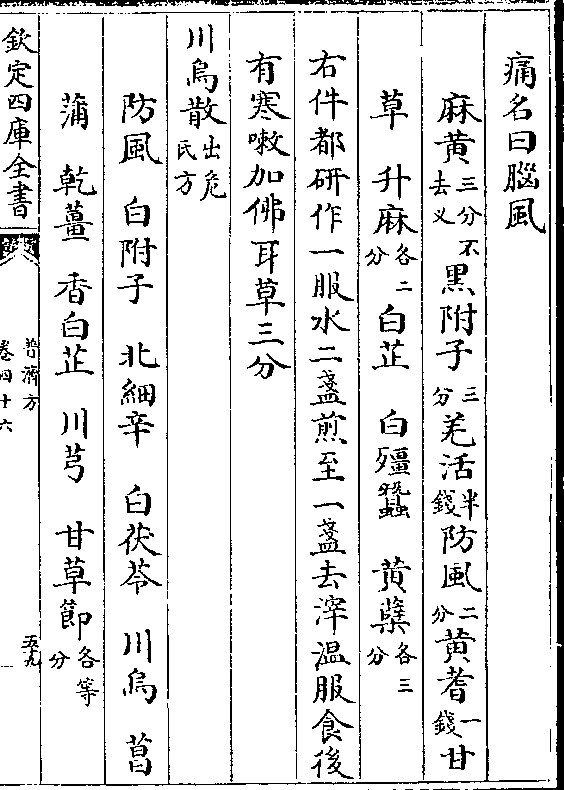 痛名曰腦風
麻黄三分不去义黒附子三分羌活半錢防風二分黄耆一錢甘
草 升麻各二分白芷 白殭蠶 黄蘗各三分
右件都研作一服水二盞煎至一盞去滓温服食後
有寒嗽加佛耳草三分
川烏散出危氏方
防風 白附子 北細辛 白茯苓 川烏 菖
蒲 乾薑 香白芷 川芎 甘草節各等分
欽定四庫全書
普濟方
卷四十六
五九